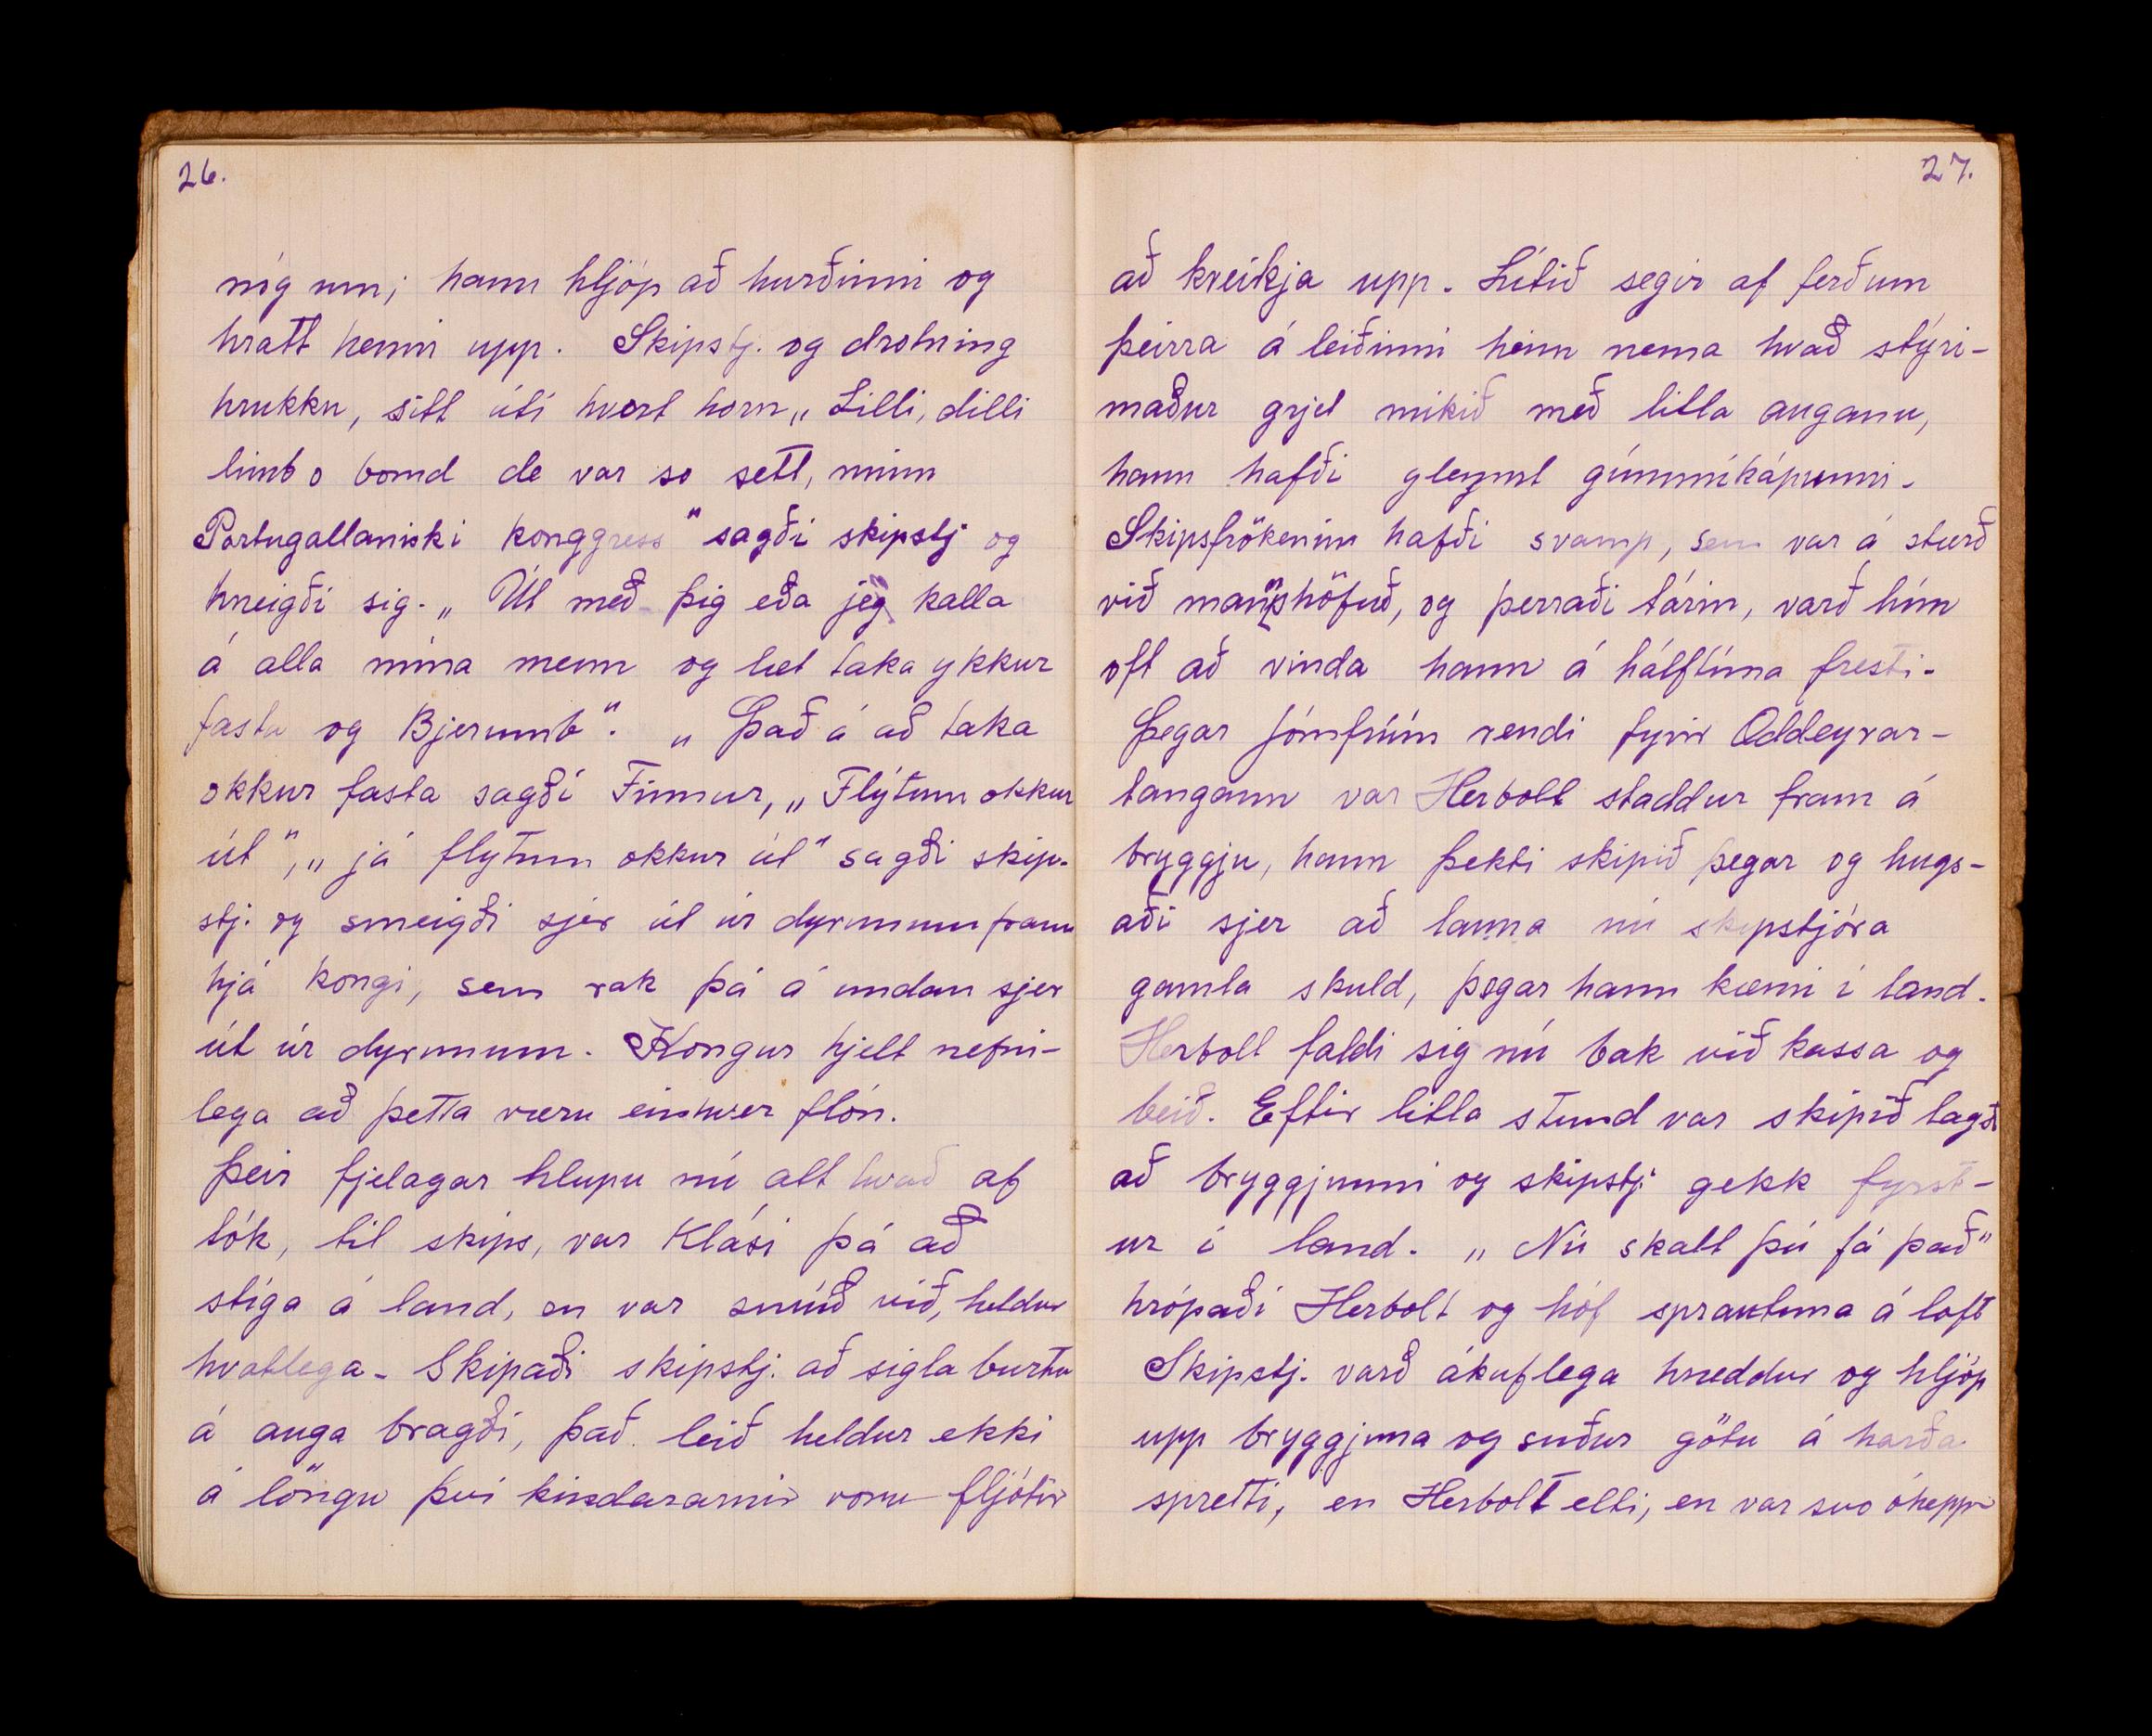 26.
nig um; hann hljóp að hurðinni og
hratt henni upp. Skipstj. og drotning
hrukku, sitt útí hvort horn „Lilli, dilli
limbo bomd de var so sett, minn
Portugallaniski konggress" sagði skipstj og
hneigði sig. „Út með þig eða jeg kalla
á alla mína menn og læt taka ykkur
fasta og Bjerumb". „Það á að taka
okkur fasta sagði Finnur, „Flýtum okkur
út", „já flytum okkur út" sagði skip-
stj. og smeigði sjer út úr dyrunum fram
hjá kongi, sem rak þá á undan sjer
út úr dyrunum. Kongur hjelt nefni-
lega að þetta væru einhver flón.
Þeir fjelagar hlupu nú alt hvað af
tók, til skips, var Klási þá að
stíga á land, en var snúið við, heldur
hvatlega. Skipaði skipstj. að sigla burtu
á auga bragði, það leið heldur ekki
á löngu því kindararnir voru fljótir
27.
að kveikja upp. Lítið segir af ferðum
þeirra á leiðinni heim nema hvað stýri-
maður grjet mikið með litla auganu,
hann hafði gleymt gúmmíkápunni.
Skipsfrökenin hafði svamp, sem var á stærð
við mannshöfuð, og þerraði tárin, varð hún
oft að vinda hann á hálftíma fresti.
Þegar Jómfrúin rendi fyrir Oddeyrar-
tangann var Herbolt staddur fram á
bryggju, hann þekti skipið þegar og hugs-
aði sjer að launa nú skipstjóra
gamla skuld, þegar hann kæmi í land.
Herbolt faldi sig nú bak við kassa og
beið. Eftir litla stund var skipið lagst
að bryggjunni og skipstj. gekk fyrst-
ur í land. „Nú skalt þú fá það"
hrópaði Herbolt og hóf sprautuna á loft
Skipstj. varð ákuflega hræddur og hljóp
upp bryggjuna og suður götu á harða
spretti, en Herbolt elti, en var svo óheppi